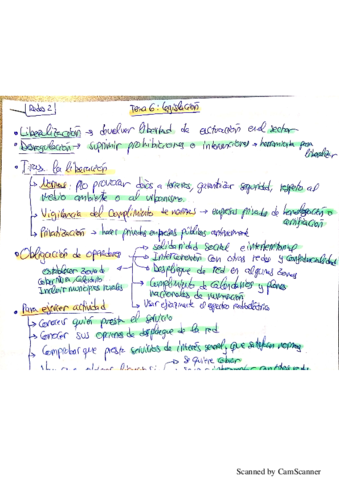 Redes 2
Tema 6: Legislación
• Liberalización → devolver libertad de actuación en el sector
• Desregulación → suprimir prohibiciones o intervenciones → herramienta para liberalizar
• Tras la liberación
→ Normas: No provocar daños a terceros, garantizar seguridad, respeto al medio ambiente o al urbanismo.
→ Vigilancia del cumplimiento de normas → empresas privadas de homologación o certificación
→ Privatización → hacer privadas empresas públicas
• Obligación de operadores
→ solidaridad social e interterritorial
→ Interconexión con otras redes y confidencialidad
→ Despliegue de red en algunas zonas
establecer zonas de
→ Cumplimiento de calendarios y planes nacionales de numeración
→ Usar eficazmente el espectro radioeléctrico
• Para ejercer actividad
→ Conocer quién presta el servicio
→ Conocer sus opciones de despliegue de la red.
→ Comprobar que preste servicios de interés social, que satisfagan normas
→ Se quiere
Scanned by CamScanner